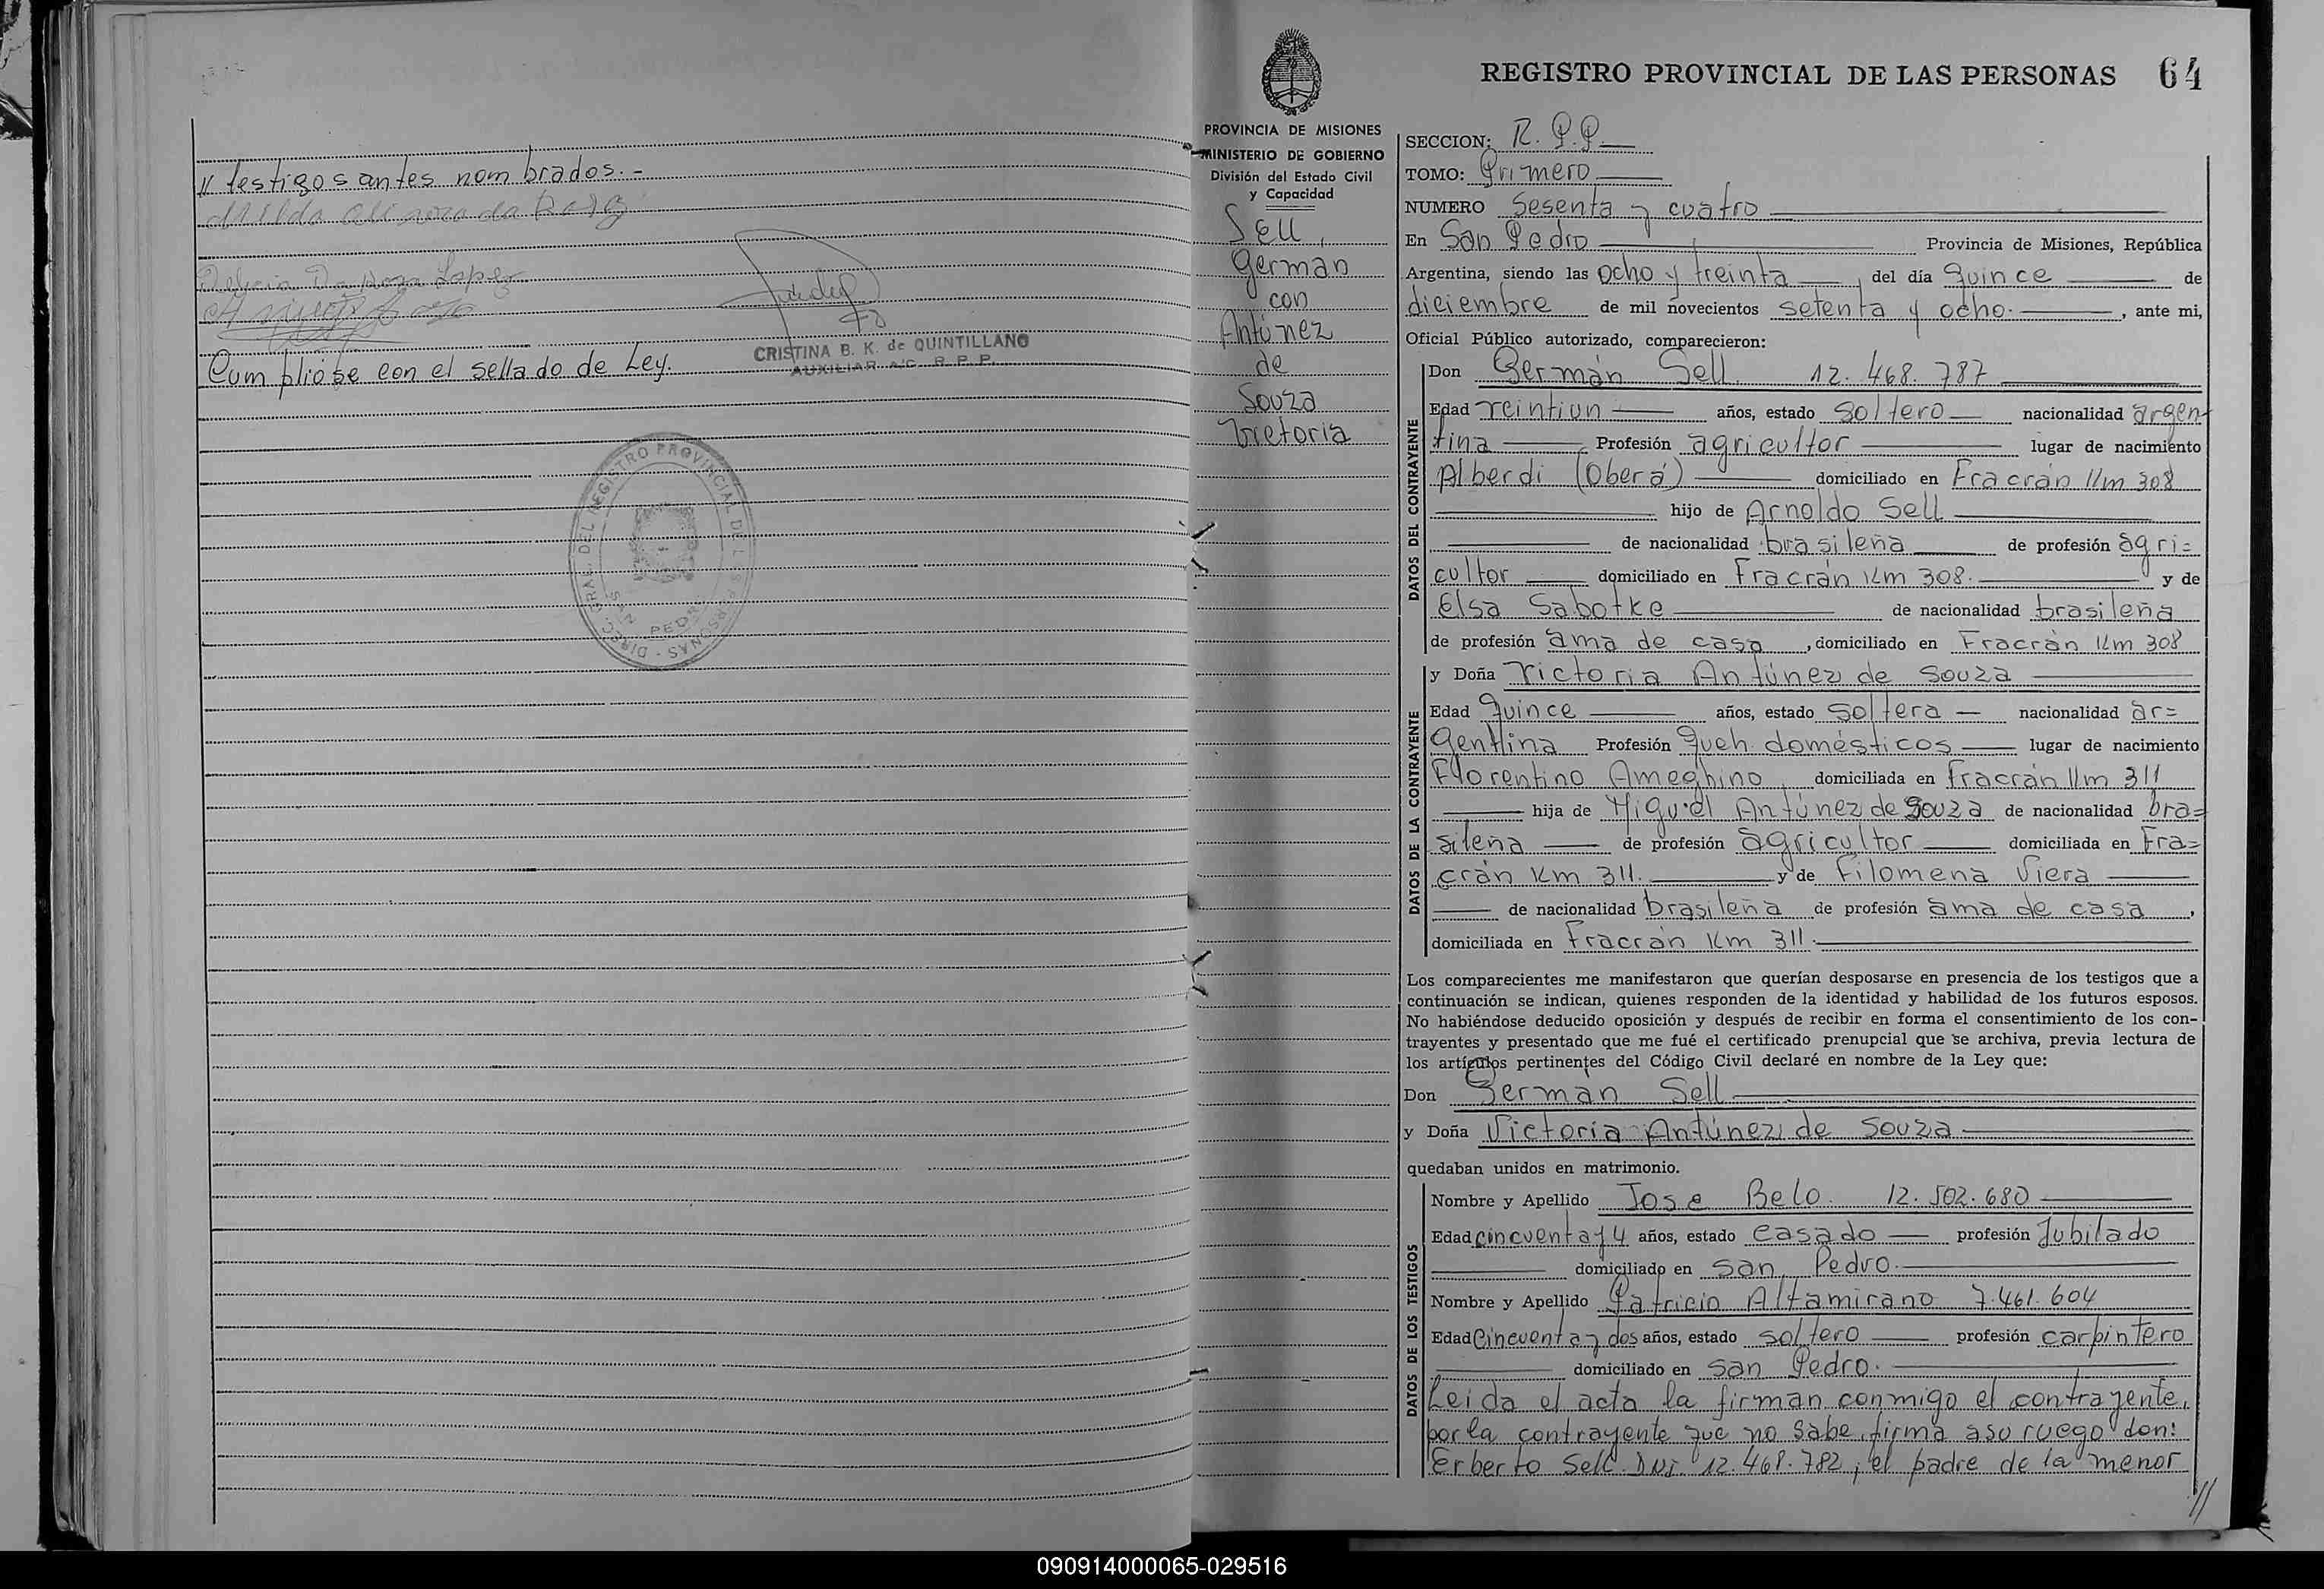 // testigos antes nombrados.-
CRISTINA B. K. de QUINTILLANO
AUXILIAR A/C R. P. P.
Cumplióse con el sellado de Ley.
DIREC. GRAL. DEL REGISTRO PROVINCIAL DE LAS PERSONAS -
SAN PEDRO
REGISTRO PROVINCIAL DE LAS PERSONAS 64
PROVINCIA DE MISIONES
MINISTERIO DE GOBIERNO
División del Estado Civil
y Capacidad
Sell,
German
con
Antúnez
de
Souza
Victoria
SECCION: R. P. P.
TOMO: Primero
NUMERO Sesenta y cuatro
En San Pedro Provincia de Misiones, República
Argentina, siendo las ocho y treinta, del día quince de
diciembre de mil novecientos setenta y ocho, ante mi,
Oficial Público autorizado, comparecieron:
DATOS DEL CONTRAYENTE
Don Germán Sell. 12.468.787
Edad veintiun años, estado soltero nacionalidad argen-
tina Profesión agricultor lugar de nacimiento
Alberdi (Oberá) domiciliado en Fracrán Km 308
hijo de Arnoldo Sell
de nacionalidad brasileña de profesión agri=
cultor domiciliado en Fracrán Km 308. y de
Elsa Sabotke de nacionalidad brasileña
de profesión ama de casa, domiciliado en Fracrán Km 308
DATOS DE LA CONTRAYENTE
y Doña Victoria Antúnez de Souza
Edad Quince años, estado soltera nacionalidad ar=
gentina Profesión queh. domésticos lugar de nacimiento
Florentino Ameghino domiciliada en Fracrán Km 311
hija de Miguel Antúnez de Souza de nacionalidad bra=
sileña de profesión agricultor domiciliada en Fra=
crán Km 311. y de Filomena Viera
de nacionalidad brasileña de profesión ama de casa,
domiciliada en Fracrán Km 311.
Los comparecientes me manifestaron que querían desposarse en presencia de los testigos que a
continuación se indican, quienes responden de la identidad y habilidad de los futuros esposos.
No habiéndose deducido oposición y después de recibir en forma el consentimiento de los con-
trayentes y presentado que me fué el certificado prenupcial que se archiva, previa lectura de
los artículos pertinentes del Código Civil declaré en nombre de la Ley que:
Don Germán Sell
y Doña Victoria Antúnez de Souza
quedaban unidos en matrimonio.
DATOS DE LOS TESTIGOS
Nombre y Apellido Jose Belo. 12.502.680
Edad cincuenta y 4 años, estado casado profesión Jubilado
domiciliado en San Pedro.
Nombre y Apellido Patricio Altamirano 7.461.604
Edad Cincuenta y dos años, estado soltero profesión carpintero
domiciliado en San Pedro.
Leida el acta la firman conmigo el contrayente,
por la contrayente que no sabe, firma a su ruego don:
Erberto Sell. DNI. 12.468.782, el padre de la menor
//
090914000065-029516